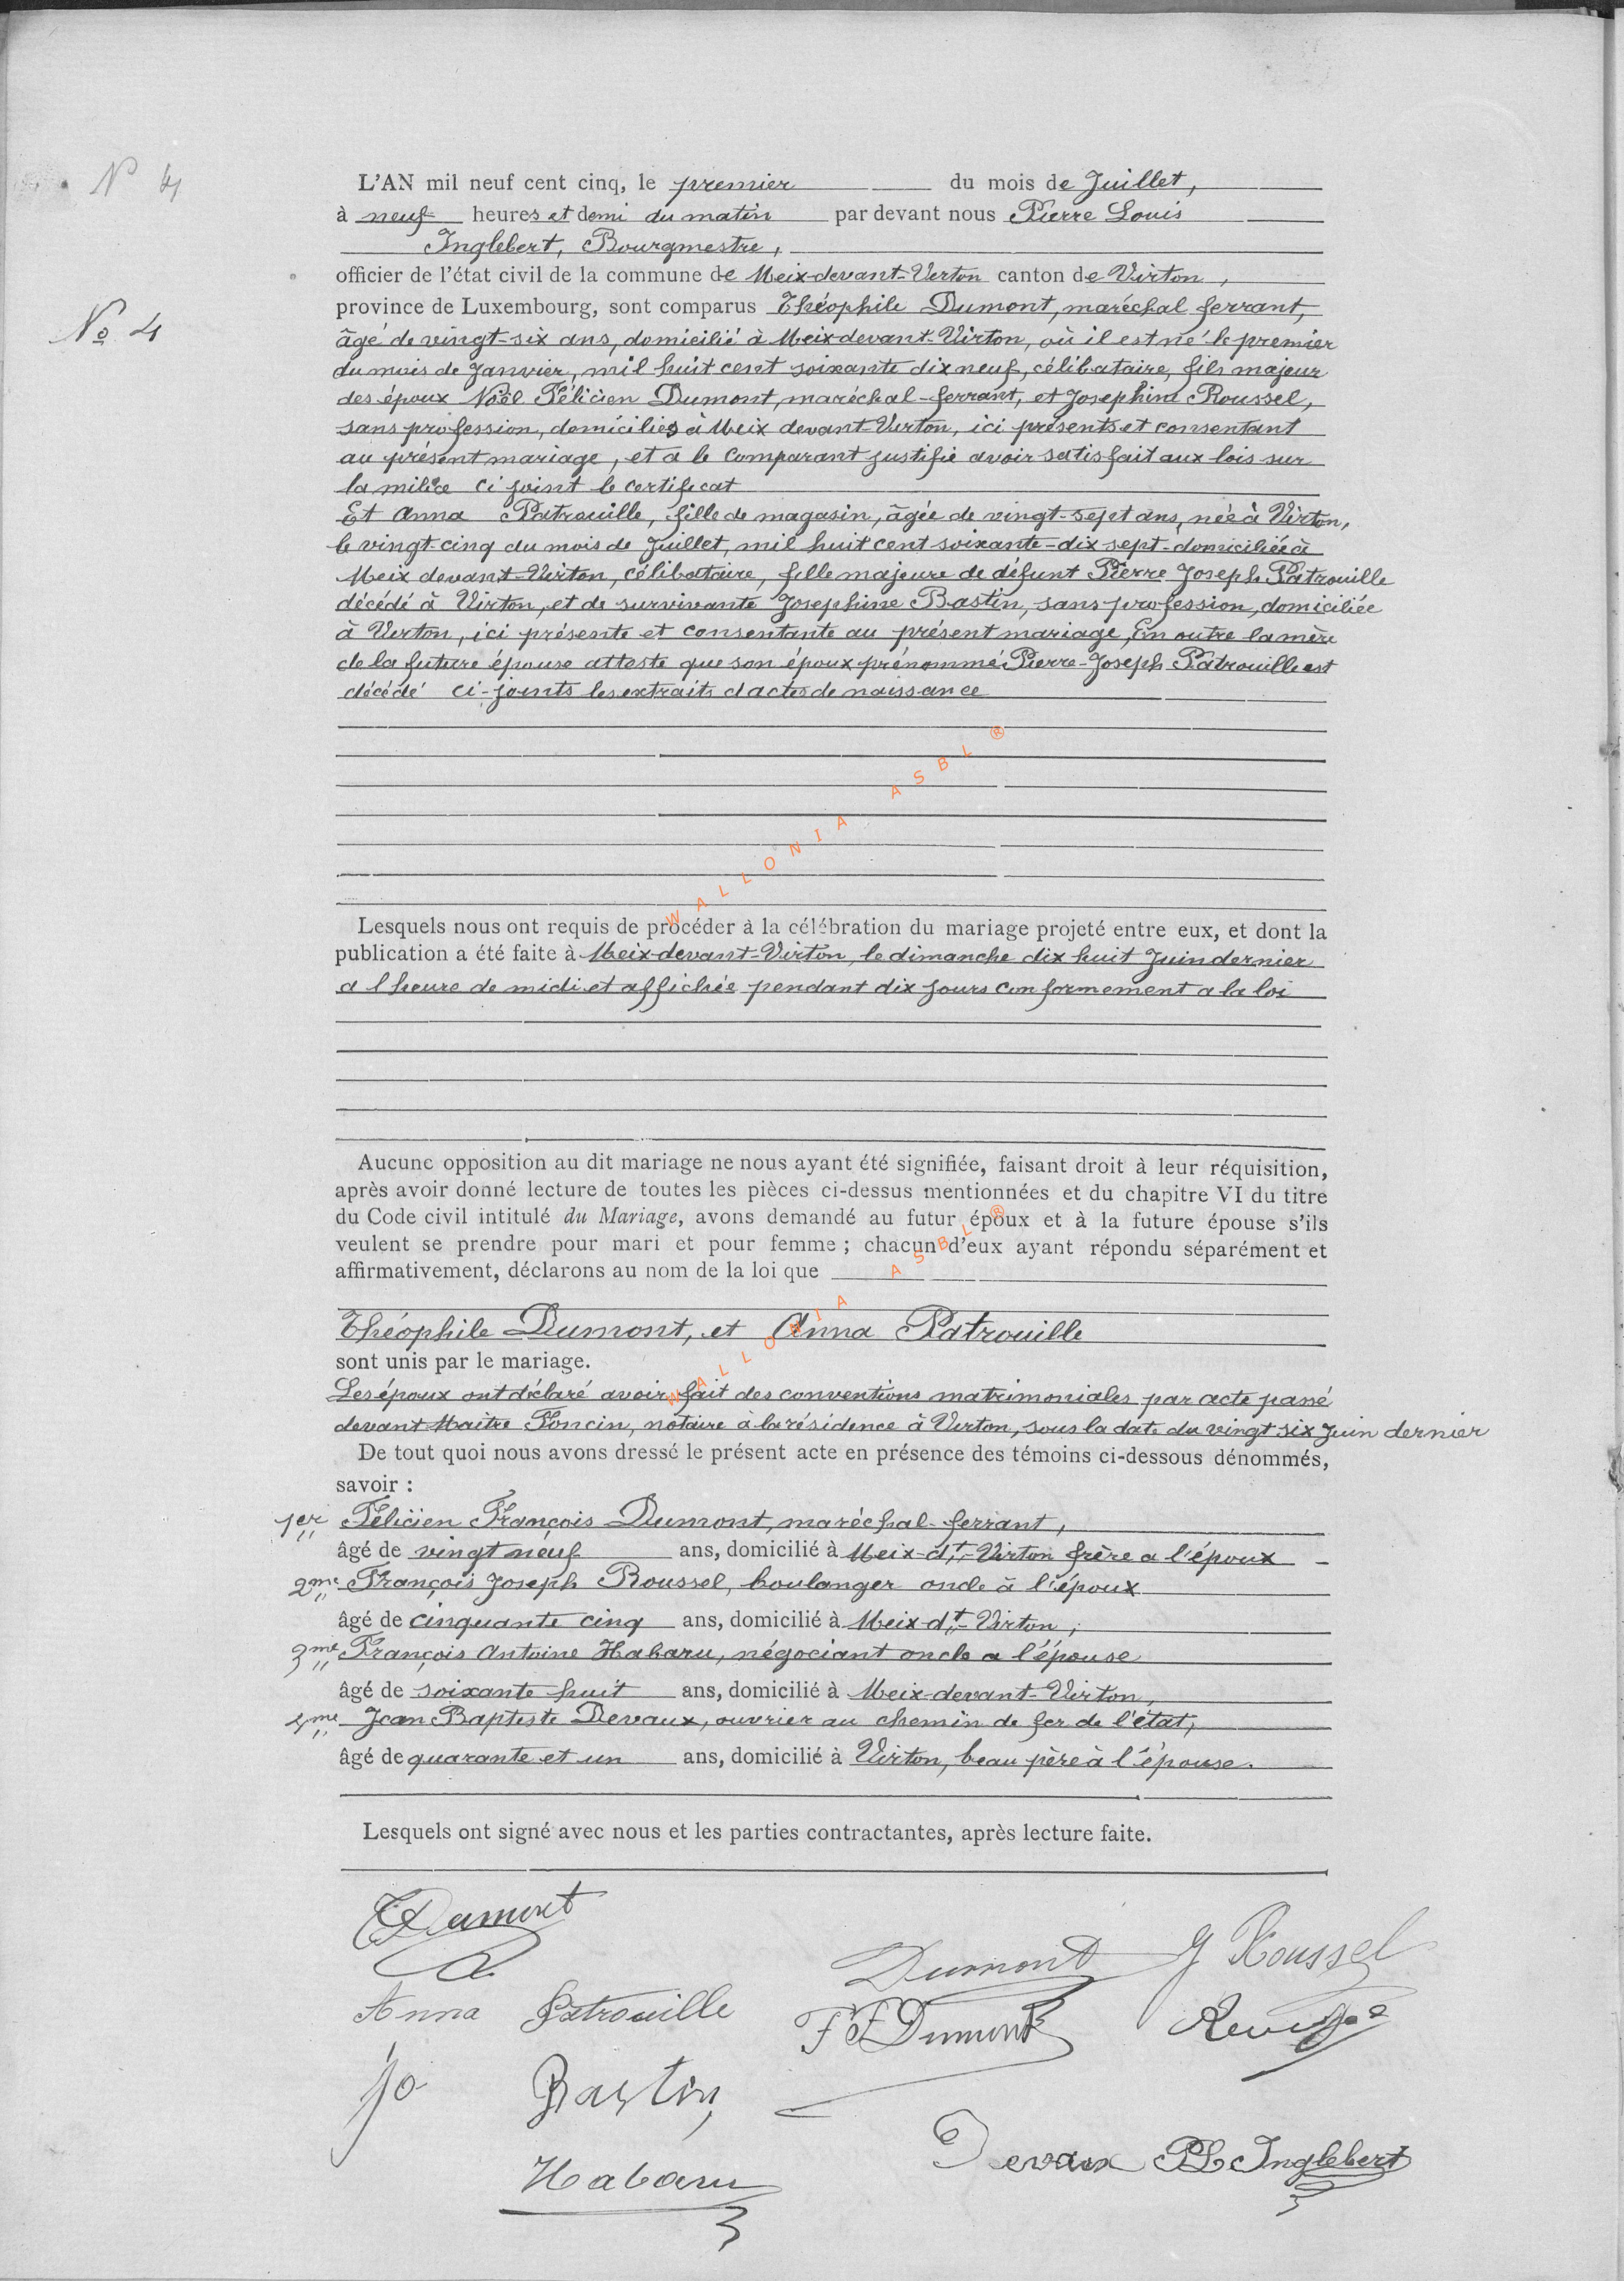 N° 4
L'AN mil neuf cent cinq, le premier du mois de Juillet,
à neuf heures et demi du matin par devant nous Pierre Louis
Inglebert, Bourgmestre,
officier de l'état civil de la commune de Meix-devant-Virton canton de Virton,
N° 4
province de Luxembourg, sont comparus Théophile Dumont, maréchal ferrant,
âgé de vingt-six ans, domicilié à Meix-devant-Virton, où il est né le premier
du mois de Janvier, mil huit cent soixante dix neuf, célibataire, fils majeur
des époux Noël Félicien Dumont, maréchal-ferrant, et Josephine Roussel,
sans profession, domiciliés à Meix devant-Virton, ici présents et consentant
au présent mariage, et a le comparant justifié avoir satisfait aux lois sur
la milice ci joint le certificat
Et Anna Patrouille, fille de magasin, âgée de vingt-sept ans, née à Virton,
le vingt-cinq du mois de Juillet, mil huit cent soixante-dix sept-domiciliée à
Meix devant-Virton, célibataire, fille majeure de défunt Pierre Joseph Patrouille
décédé à Virton, et de survivante Josephine Bastin, sans profession, domiciliée
à Virton, ici présente et consentante au présent mariage, En outre la mère
de la future épouse atteste que son époux prénommé Pierre-Joseph Patrouille est
décédé ci-joints les extraits d actes de naissance
WALLONIA ASBL ®
Lesquels nous ont requis de procéder à la célébration du mariage projeté entre eux, et dont la
publication a été faite à Meix-devant-Virton, le dimanche dix huit Juin dernier
a l heure de midi et affichée pendant dix jours conformement a la loi
Aucune opposition au dit mariage ne nous ayant été signifiée, faisant droit à leur réquisition,
après avoir donné lecture de toutes les pièces ci-dessus mentionnées et du chapitre VI du titre
du Code civil intitulé du Mariage, avons demandé au futur époux et à la future épouse s'ils
veulent se prendre pour mari et pour femme ; chacun d'eux ayant répondu séparément et
affirmativement, déclarons au nom de la loi que
WALLONIA ASBL ®
Théophile Dumont, et Anna Patrouille
sont unis par le mariage.
Les époux ont déclaré avoir fait des conventions matrimoniales par acte passé
devant Maître Foncin, notaire à la résidence à Virton, sous la date du vingt six Juin dernier
De tout quoi nous avons dressé le présent acte en présence des témoins ci-dessous dénommés,
savoir :
1er Félicien François Dumont, maréchal-ferrant,
âgé de vingt neuf ans, domicilié à Meix-dt-Virton frère a l'époux
2me François Joseph Roussel, boulanger oncle à l'époux
âgé de cinquante cinq ans, domicilié à Meix-dt-Virton,
3me François Antoine Habaru, négociant oncle a l'épouse
âgé de soixante huit ans, domicilié à Meix-devant-Virton,
4me Jean Baptiste Devaux, ouvrier au chemin de fer de l'état,
âgé de quarante et un ans, domicilié à Virton, beau père à l'épouse.
Lesquels ont signé avec nous et les parties contractantes, après lecture faite.
T Dumont
Dumont J Roussel
Anna Patrouille
F F Dumont
Jo Bastin
Devaux PL Inglebert
Habaru